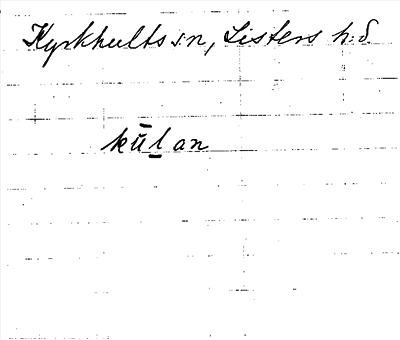 Kyrkhults s:n, Listers h:d
kū̱ḻan